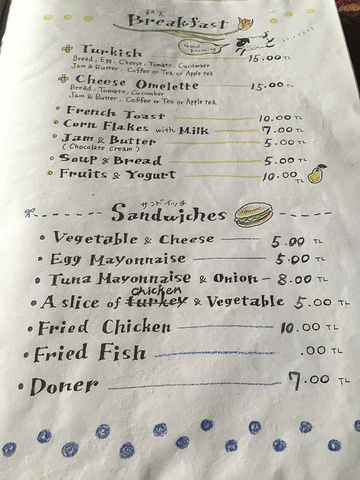 Breakfast
Good Morning
Turkish 15.00 TL
Bread, Egg, Cheese, Tomato, Cucumber
Jam & Butter, Coffee or Tea or Apple tea
Cheese Omelette 15.00 TL
Bread, Tomato, Cucumber
Jam & Butter, Coffee or Tea or Apple tea
French Toast 10.00 TL
Corn Flakes with Milk 7.00 TL
Jam & Butter 5.00 TL
(Chocolate Cream)
Soup & Bread 5.00 TL
Fruits & Yogurt 10.00 TL
サンドイッチ
Sandwiches
Vegetable & Cheese 5.00 TL
Egg Mayonnaise 5.00 TL
Tuna Mayonnaise & Onion 8.00 TL
chicken
A slice of turkey & Vegetable 5.00 TL
Fried Chicken 10.00 TL
Fried Fish .00 TL
Doner 7.00 TL